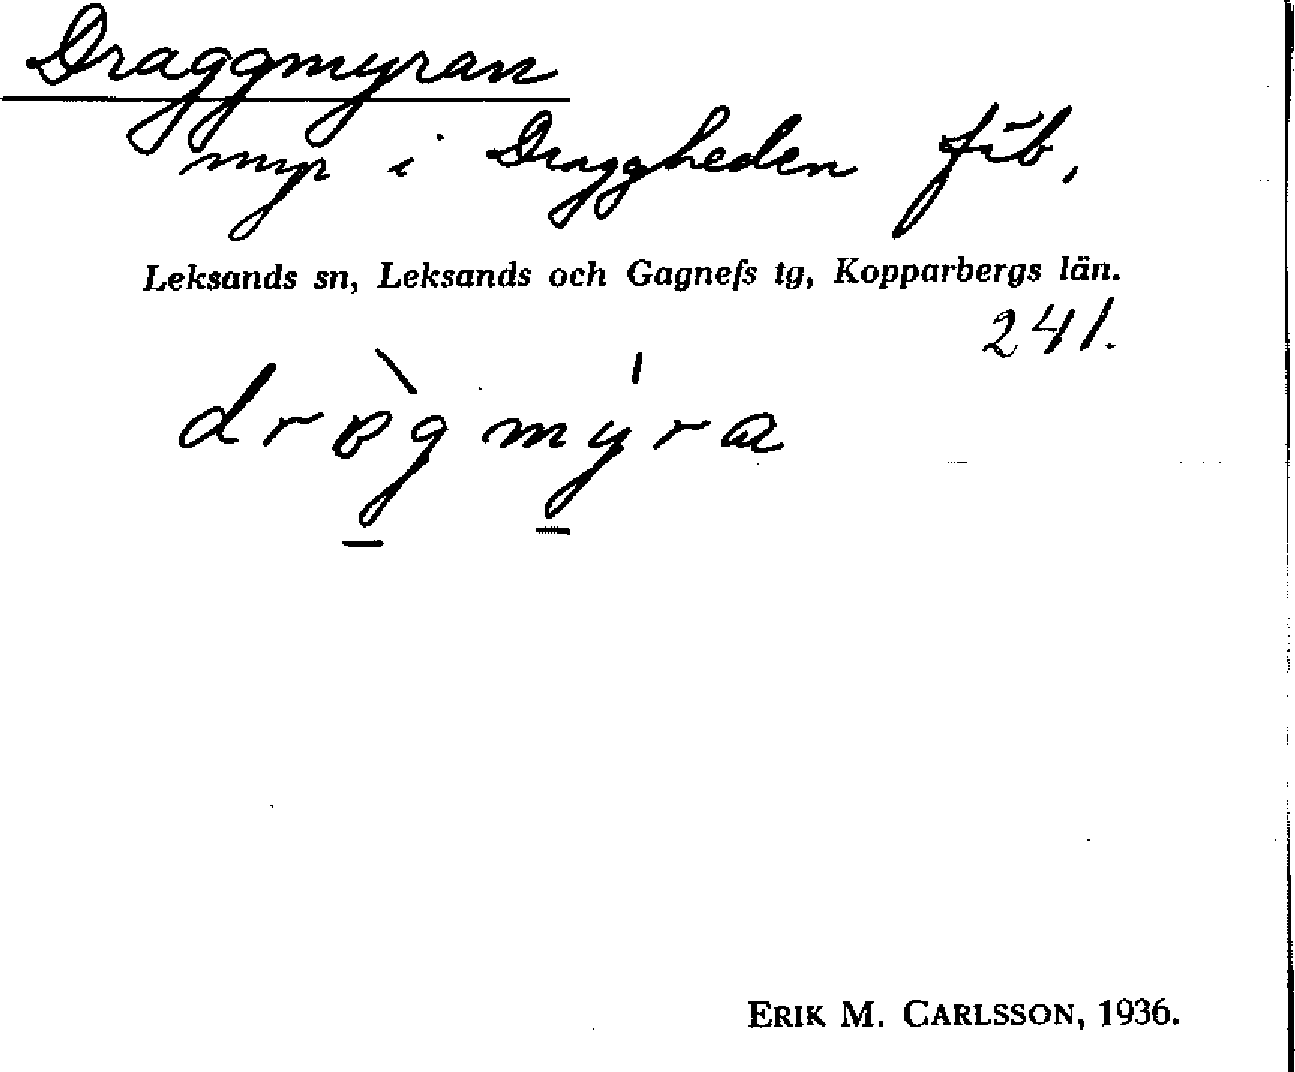 Draggmyran
myr i Draggheden fäb,
Leksands sn, Leksands och Gagnefs tg, Kopparbergs län.
241.
ERIK M. CARLSSON, 1936.